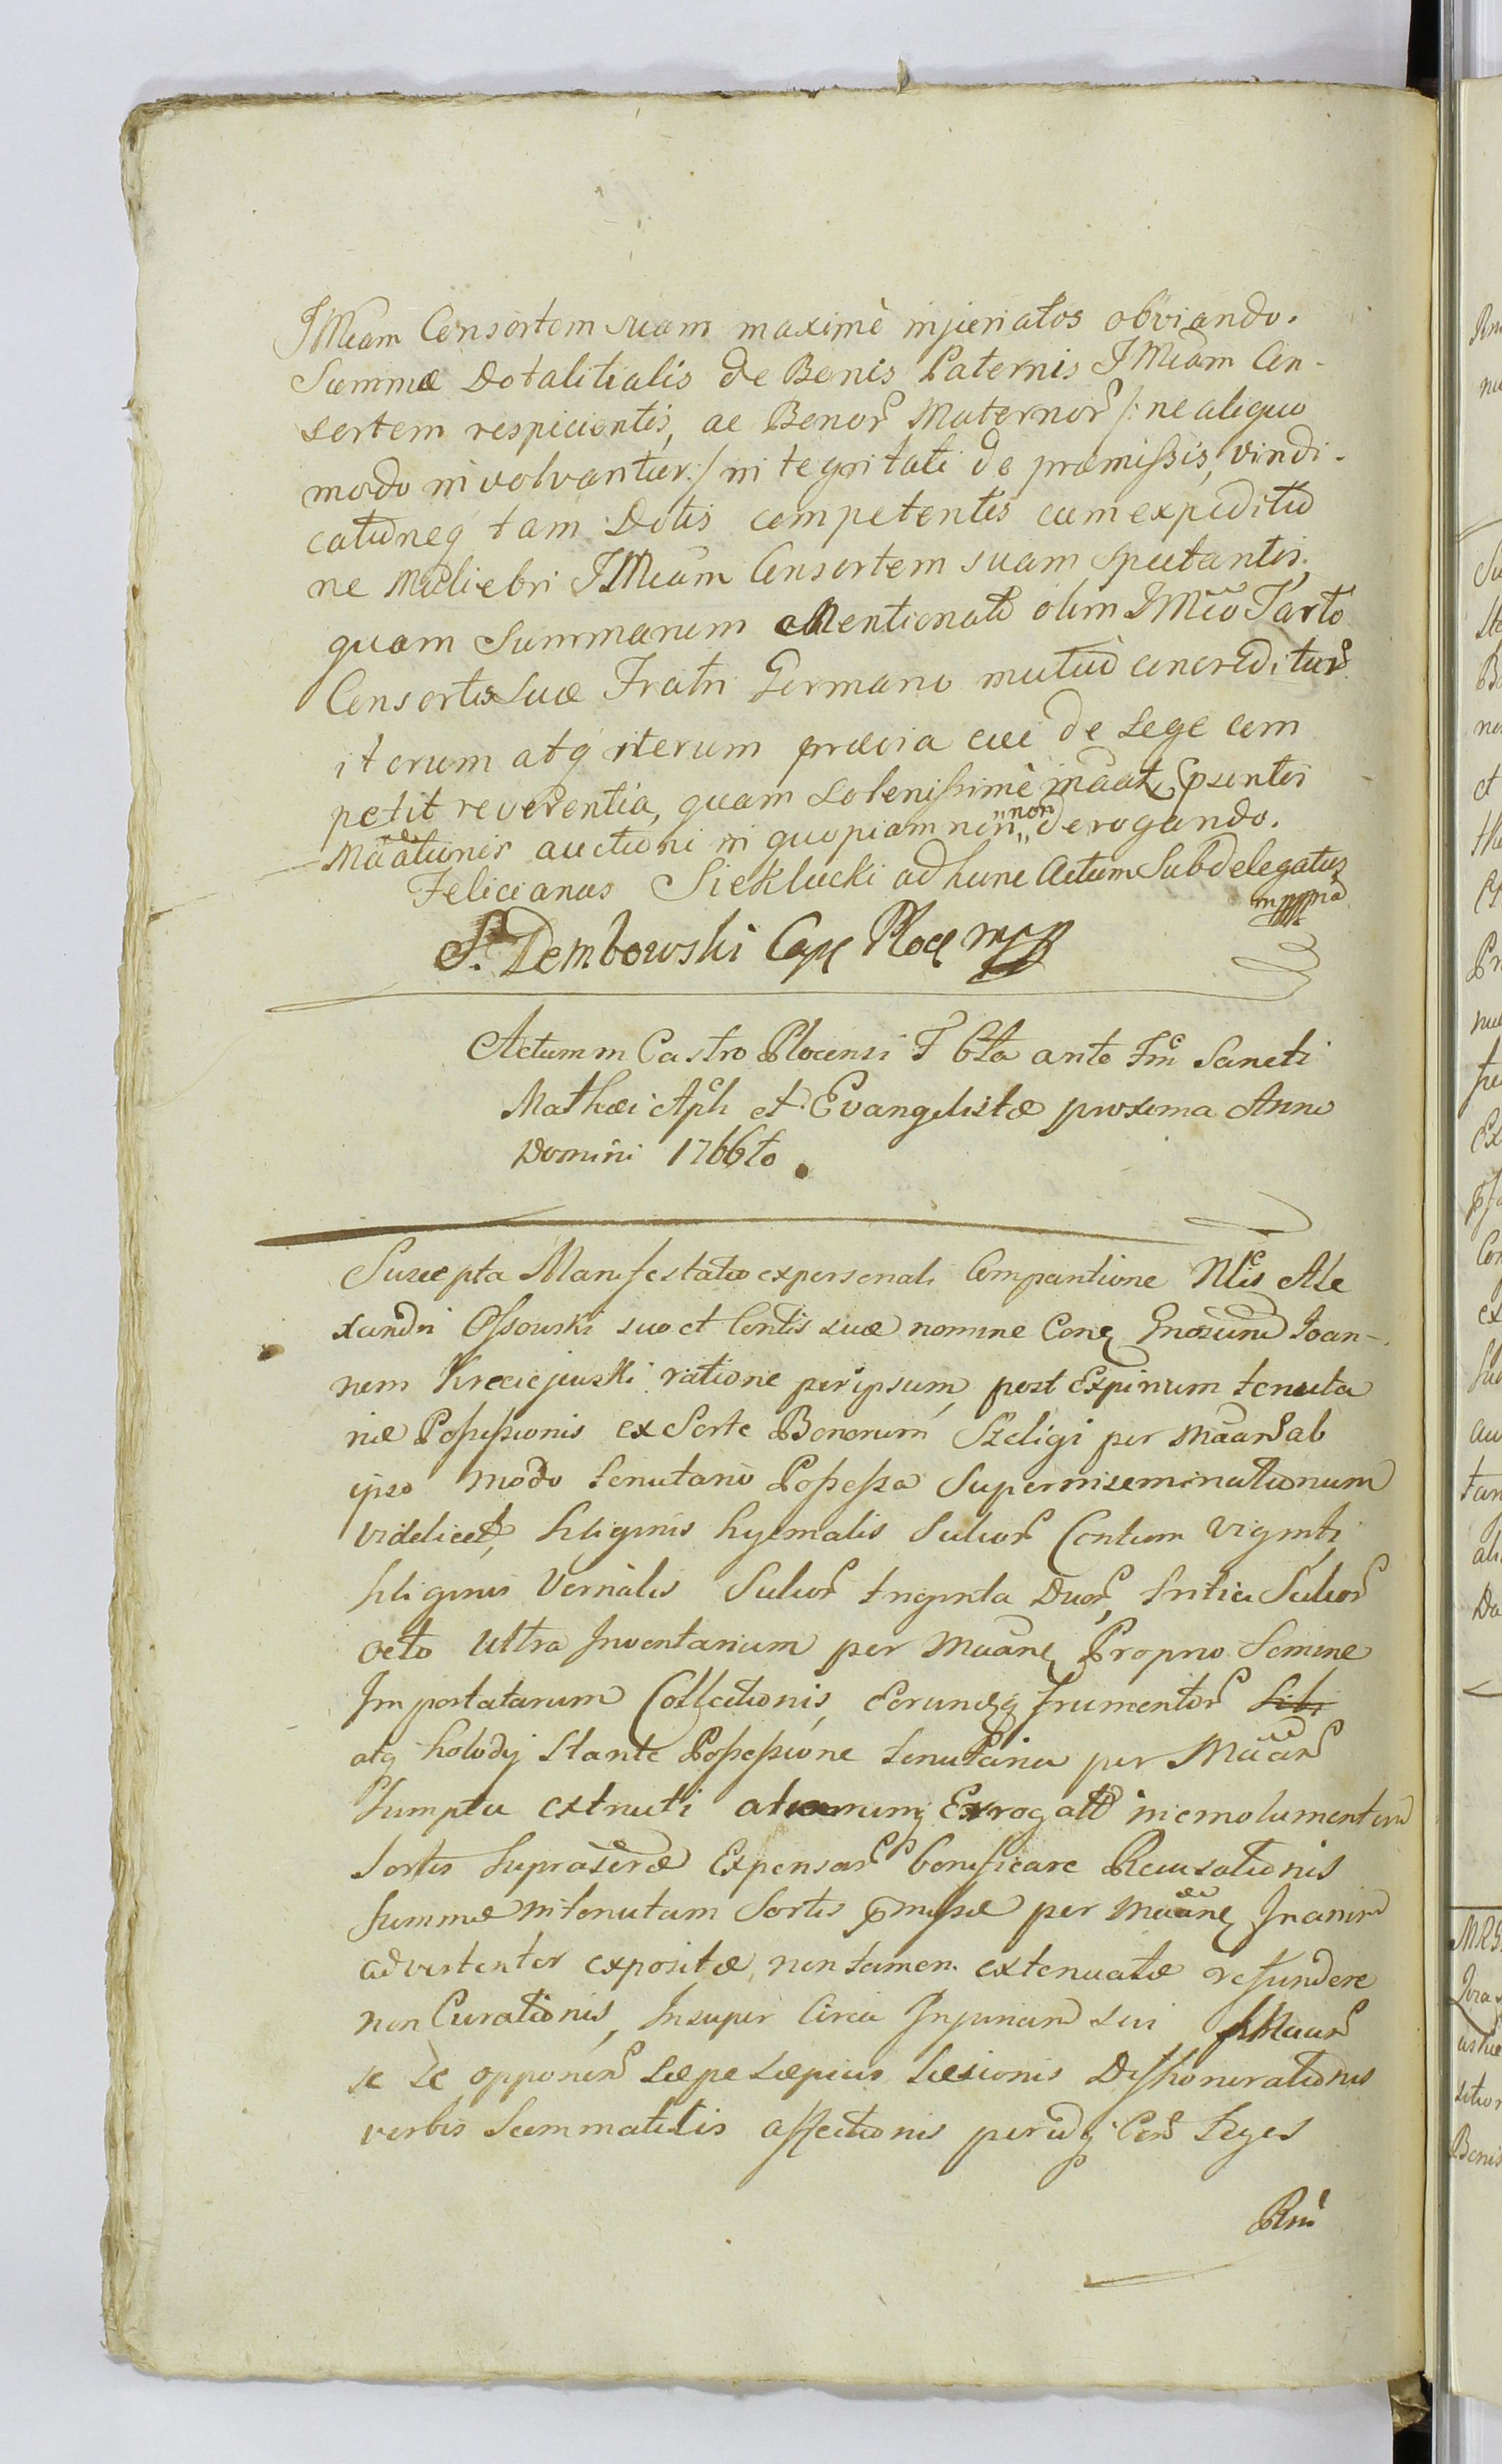 IMciam Consortem suam maximè injuriatos obviando.
Summæ Dotalitialis de Bonis Paternis IMciam Con-
sortem respicientis, ac Bonor Maternor /: ne aliquo
modo involvantur :/ integritati de præmissis, vindi-
cationeq tam Dotis competentis cum expeditio
ne Muliebri IMciam Consortem suam spectantis,
quam Summarum Mentionato olim IMcio Tarło
Consortis Suæ Fratri Germano mutuò concreditar
iterum atq iterum prævia cui de Lege com
petit reverentia, quam Solenissimè maat, psentis
Maationis auctioni in quopiam non „non„ derogando.
Felicianus Sieklucki ad hunc Actum Subdelegatus
mppria
S. Dembowski Cap Ploc mpp
Actum in Castro Plocensi F 6ta ante Fm Sancti
Mathæi Apli et Evangelistæ proxima Anno
Domini 1766to.
Suscepta Manifestatio ex personali Comparitione Nlis Ale
xandri Ossowski suo et Contis suæ nomine Con Gnosum Joan-
nem Krecicjewski ratione per ipsum, post Expirium tenuta
riæ Possessionis ex Sorte Bonorum Szeligi per Maan ab
ipso modo tenutario Possessa Superinseminationum
videlicet, Siliginis hyemalis Sulcor Centum viginti
Siliginis Vernalis Sulcor triginta Duor, tritici Sulcor
octo ultra Inventarium per Maan Proprio Semine
Importatarum Collectionis, Eorundq frumentor Sibi
atq holody Stante Possessione tenutaria per Maan
Sumptu extructi Exrogat in emolumentum
Sortis Suprascræ Expensar bonificare Recusationis
Summæ in tenutam Sortis pmissæ per Maan
advertenter expositæ, non tamen extenuatæ refundere
non Curationis, Insuper Circa Injuriam sui Maan
se se opponen sæpe sæpius læsionis Dishonorationis
verbis Scommatitis affectionis per idq Con Leges
Rni